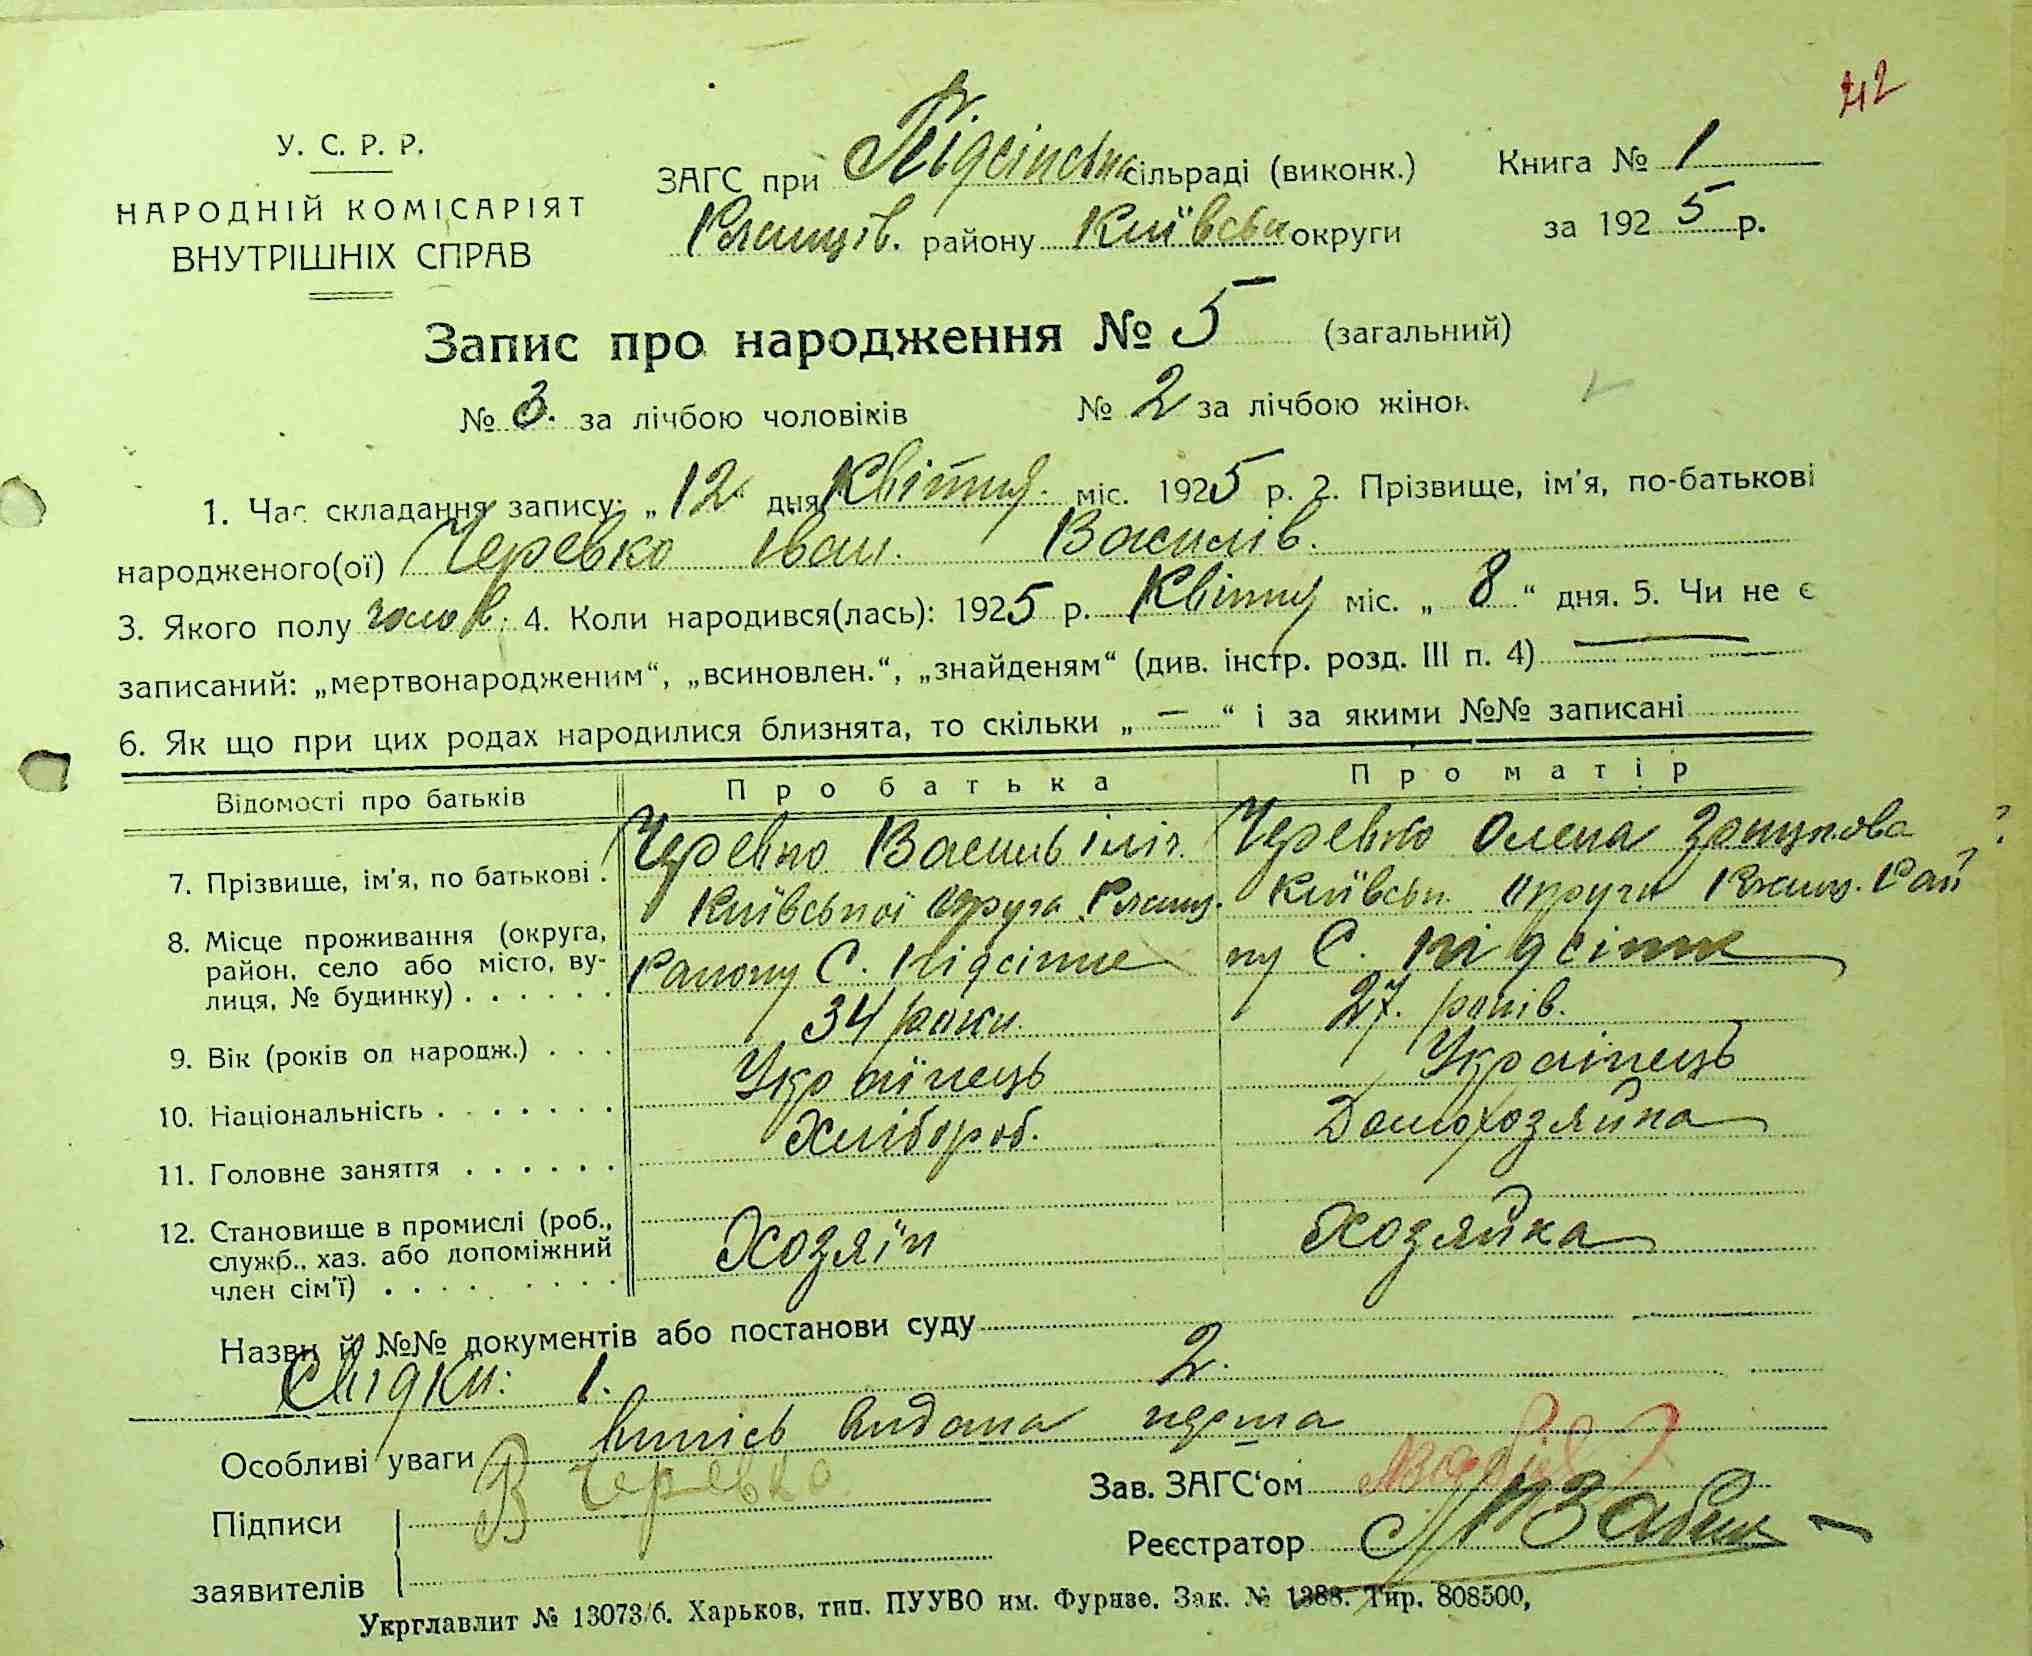 42
У. С. Р. Р.
НАРОДНІЙ КОМІСАРІЯТ
ВНУТРІШНІХ СПРАВ
ЗАГС при Підсінськ сільраді (виконк.)
району Київськ округи
Книга № 1
за 1925 р.
Запис про народження № 5 (загальний)
№ 3. за лічбою чоловіків № 2 за лічбою жінок
1. Час складання запису: „12 дня Квітня міс. 1925 р. 2. Прізвище, ім'я, по-батькові
народженого(ої) Черевко Іван Василів.
3. Якого полу чолов. 4. Коли народився(лась): 1925 р. Квітня міс. „8“ дня. 5. Чи не є
записаний: „мертвонародженим“, „всиновлен.“, „знайденям“ (див. інстр. розд. III п. 4) —
6. Як що при цих родах народилися близнята, то скільки „—“ і за якими №№ записані
Відомості про батьків Про батька Про матір
7. Прізвище, ім'я, по батькові . Черевко Василь Черевко Олена
8. Місце проживання (округа, район, село або місто, вулиця, № будинку) . . . . . .
Київської округа
району С. Підсінне
Київськ округи Рай
ну С. Підсінне
9. Вік (років од народж.) . . . 34 роки 27. років.
10. Національність . . . . . . . Українець Українець
11. Головне заняття . . . . . . Хлібороб. Домохозяйка
12. Становище в промислі (роб., служб., хаз. або допоміжний член сім'ї) . . . . . . . . Хозяїн Хозяйка
Назви й №№ документів або постанови суду
Свідки: 1. 2.
Особливі уваги випісь видана перша
Підписи В Черевко
заявителів
Зав. ЗАГС'ом
Реєстратор
Укрглавлит № 13073/б. Харьков, тип. ПУУВО им. Фрунзе. Зак. № 1388. Тир. 808500,